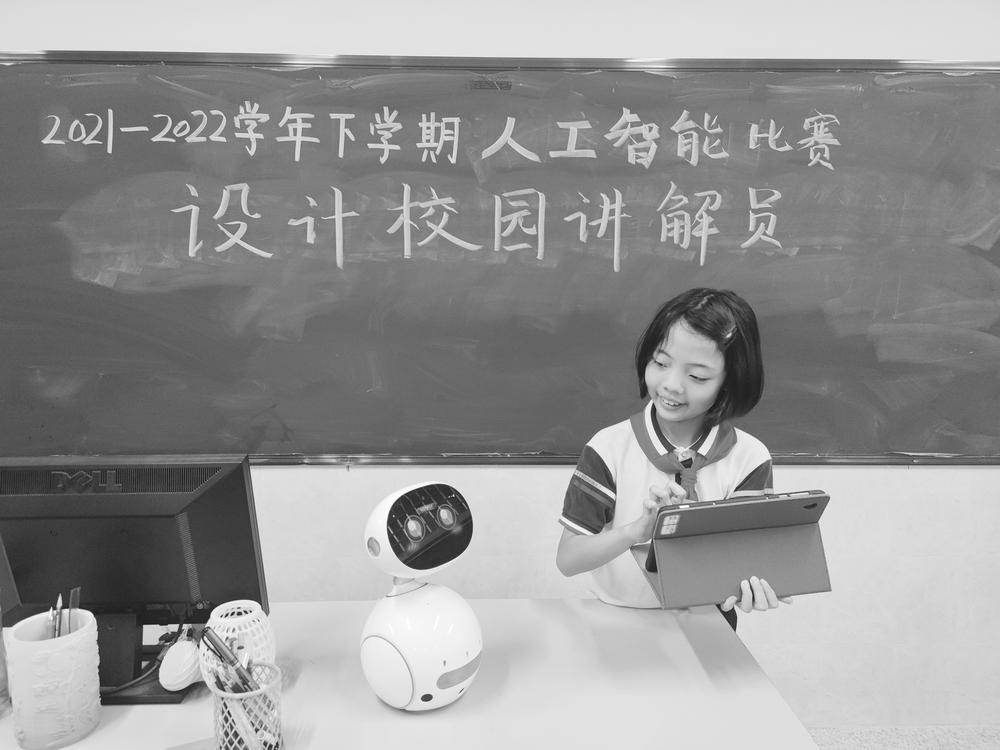 2021-2022学年下学期 人工智能比赛
设计校园讲解员
DELL